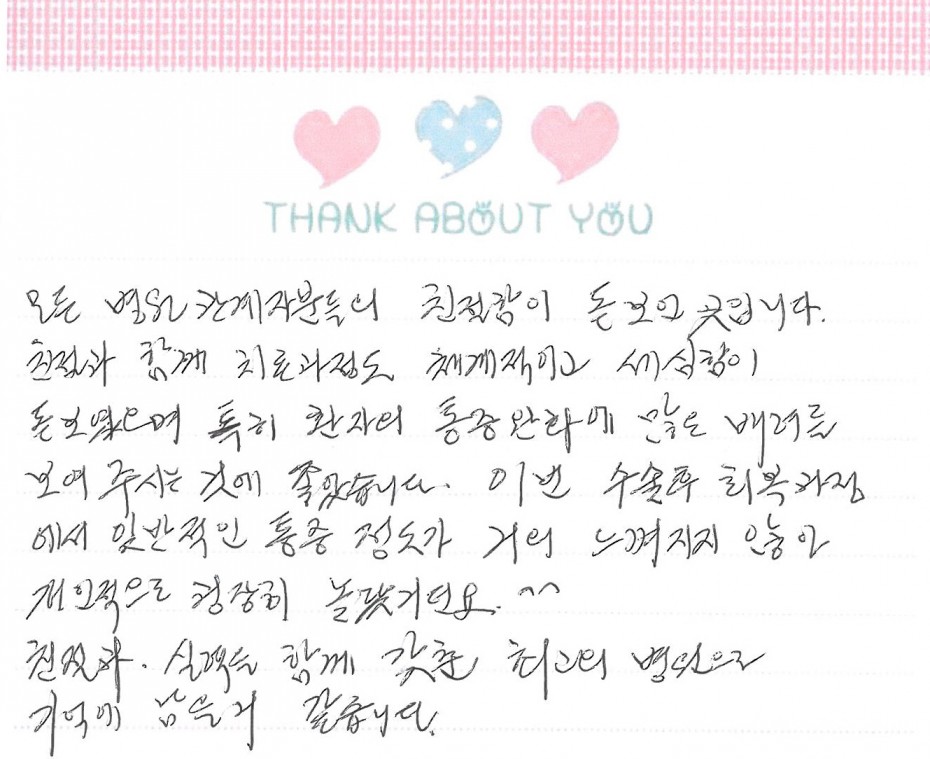 THANK ABOUT YOU
모든 병원 관계자분들의 친절함이 돋보인 곳입니다.
친절과 함께 치료과정도 체계적이고 세심함이
돋보였으며 특히 환자의 통증완화에 많은 배려를
보여 주시는 것에 좋았습니다. 이번 수술후 회복과정
에서 일반적인 통증 정도가 거의 느껴지지 않아
개인적으로 굉장히 놀랐거던요. ^^
친절과. 실력을 함께 갖춘 최고의 병원으로
기억에 남을거 같습니다.